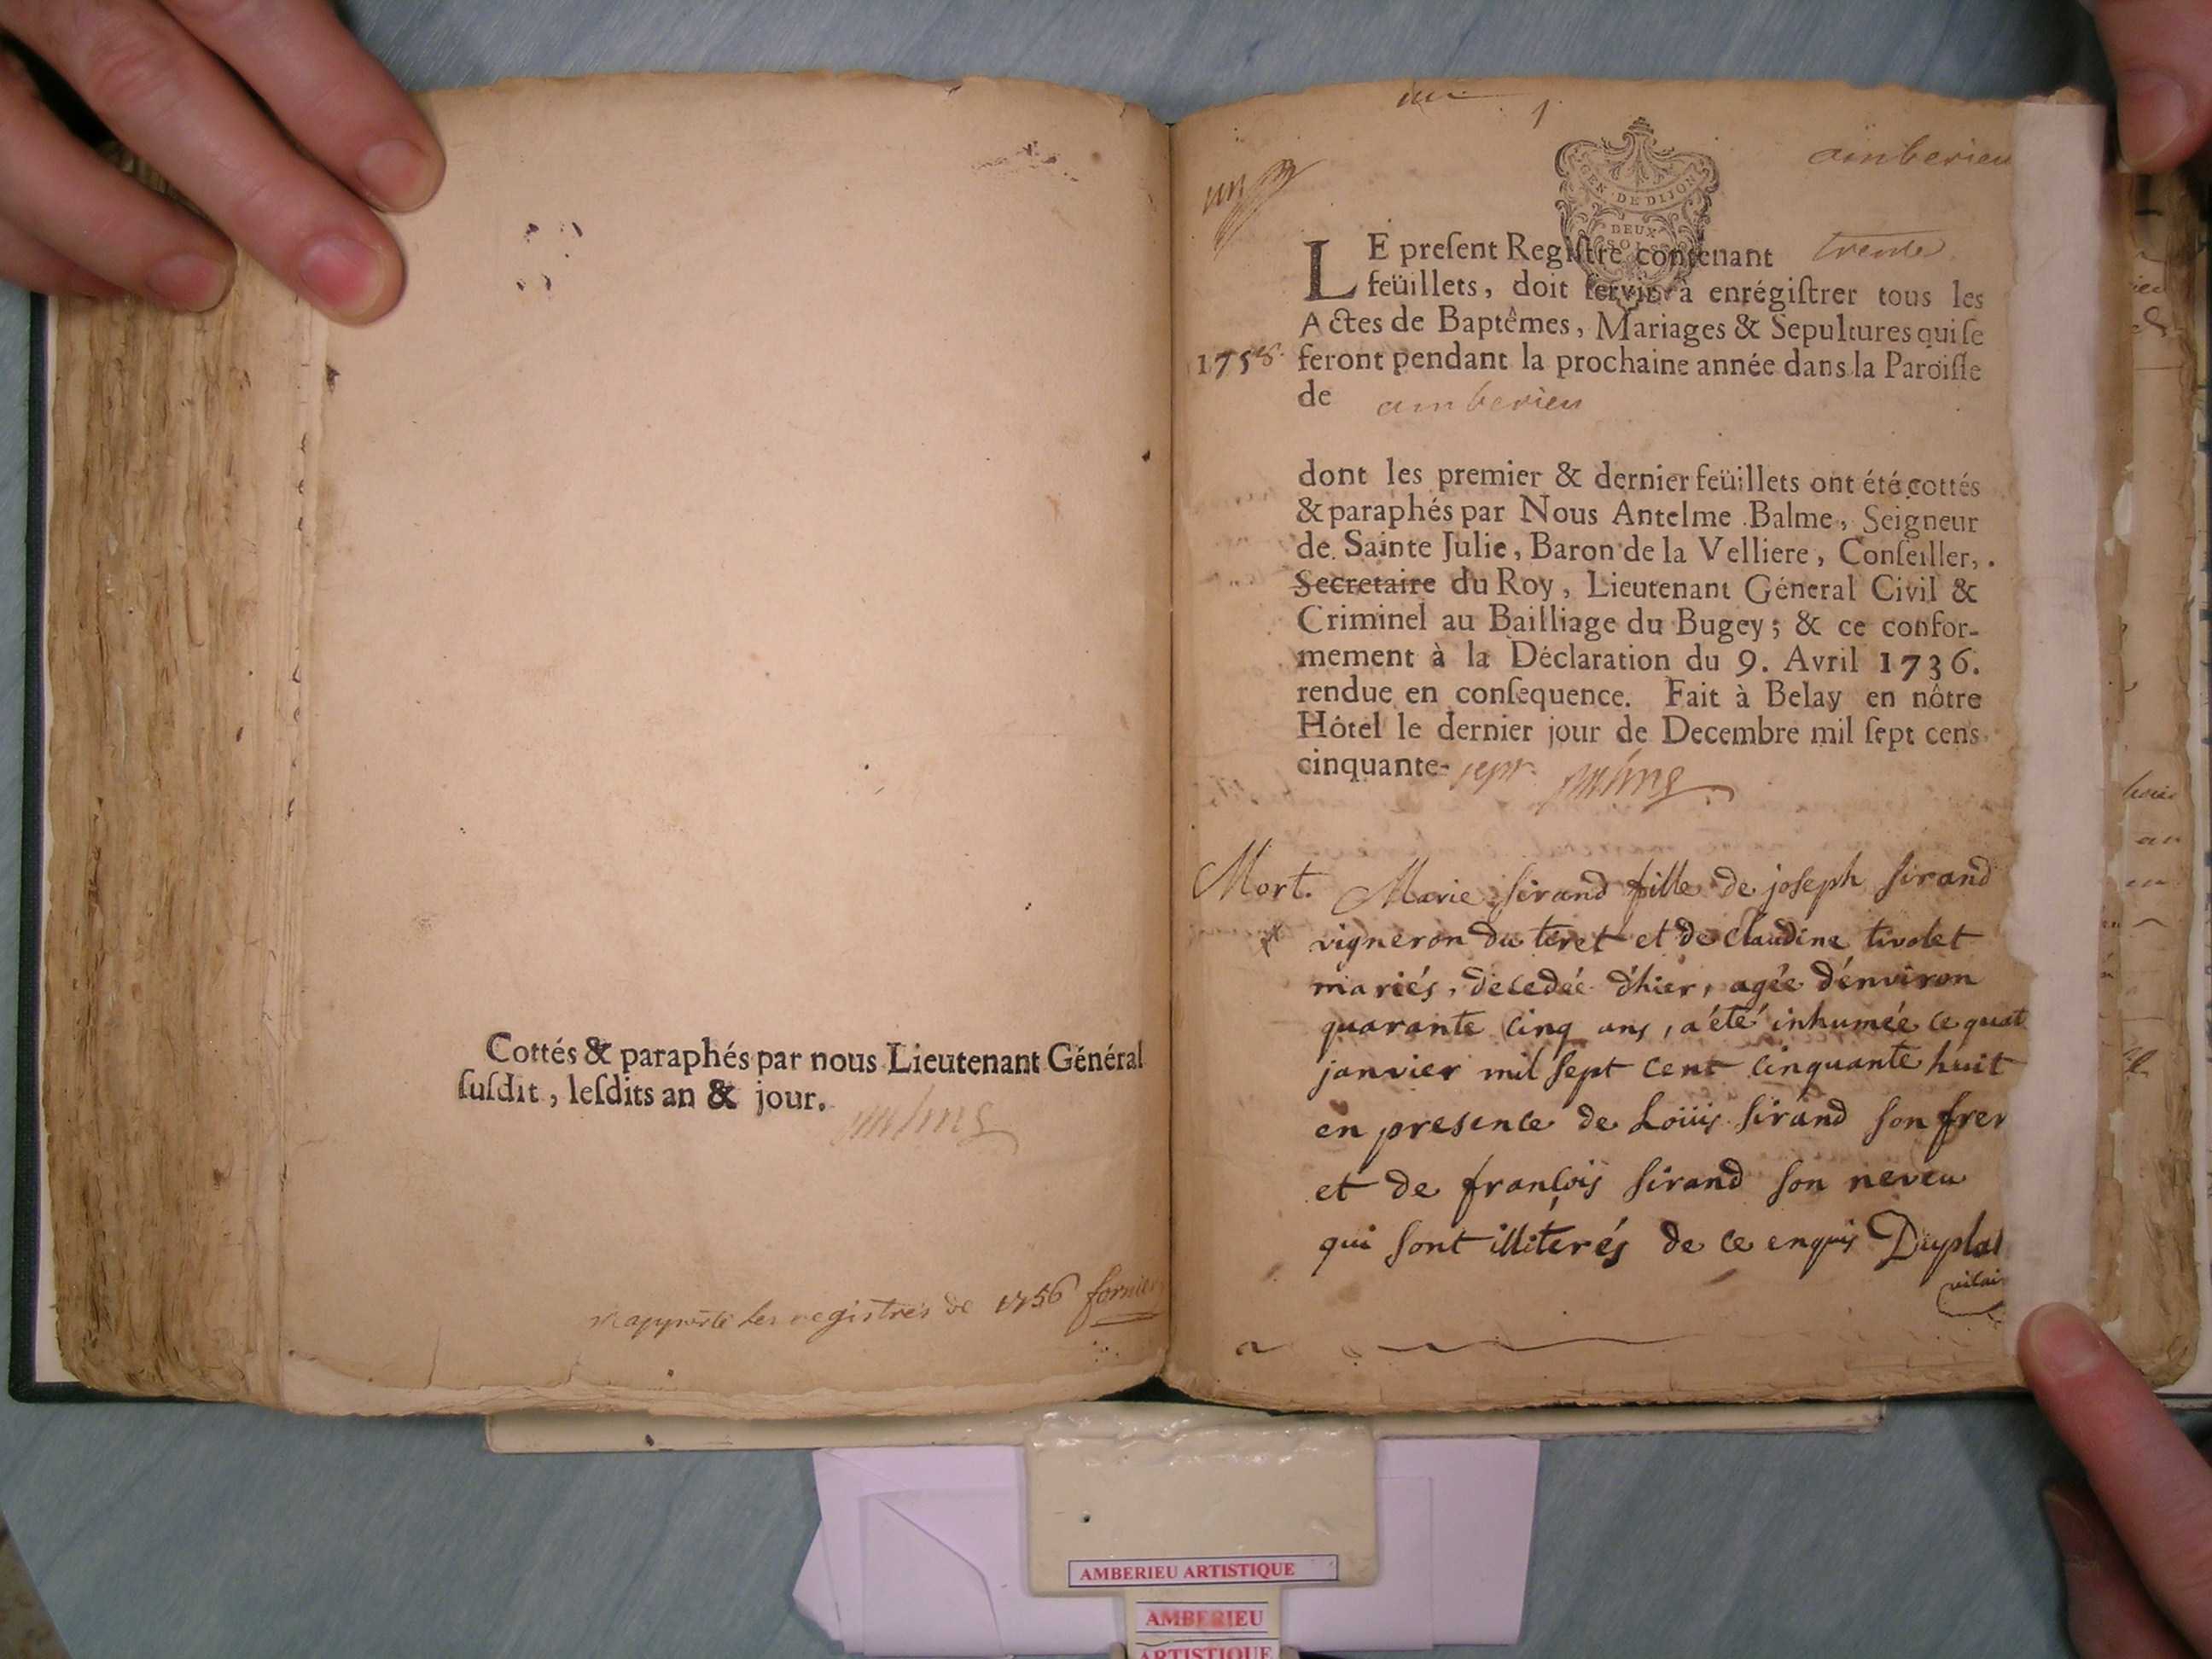 Cottés & paraphés par nous Lieutenant Général
ſuſdit, leſdits an & jour.
rapporté les registres de 1756
1
amberieu
GEN. DE DIJON
DEUX
SOLS
LE preſent Regiſtre contenant trente
feüillets, doit ſervir à enrégiſtrer tous les
Actes de Baptêmes, Mariages & Sepultures qui ſe
1758. feront pendant la prochaine année dans la Paroiſſe
de amberieu
dont les premier & dernier feüillets ont été cottés
& paraphés par Nous Antelme Balme, Seigneur
de Sainte Julie, Baron de la Velliere, Conſeiller,
Secretaire du Roy, Lieutenant Géneral Civil &
Criminel au Bailliage du Bugey; & ce confor-
mement à la Déclaration du 9. Avril 1736.
rendue en conſequence. Fait à Belay en nôtre
Hôtel le dernier jour de Decembre mil ſept cens
cinquante-sept
Mort. Marie sirand fille de joseph sirand
vigneron du teret et de claudine tivolet
mariés, décedée d'hier, agée d'énviron
quarante cinq ans, a été inhumée ce quat
janvier mil sept cent cinquante huit
en presence de Loüis sirand son frer
et de françois sirand son neveu
qui sont illiterés de ce enquis Duplat
vicair
AMBERIEU ARTISTIQUE
AMBERIEU
ARTISTIQUE